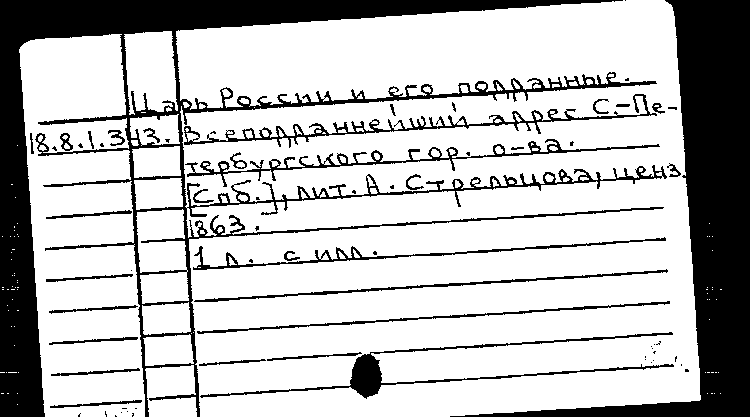 Царь России и его подданные.
18.8.1.343. Всеподданнейший адрес С.-Пе-
тербургского гор. о-ва.
[Спб.], лит. А. Стрельцова, ценз.
1863.
1 л. с илл.